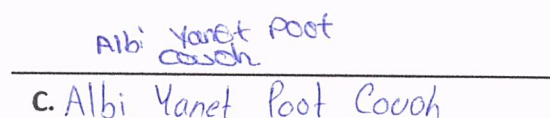 Albi Yanet Poot
Couoh
C. Albi Yanet Poot Couoh